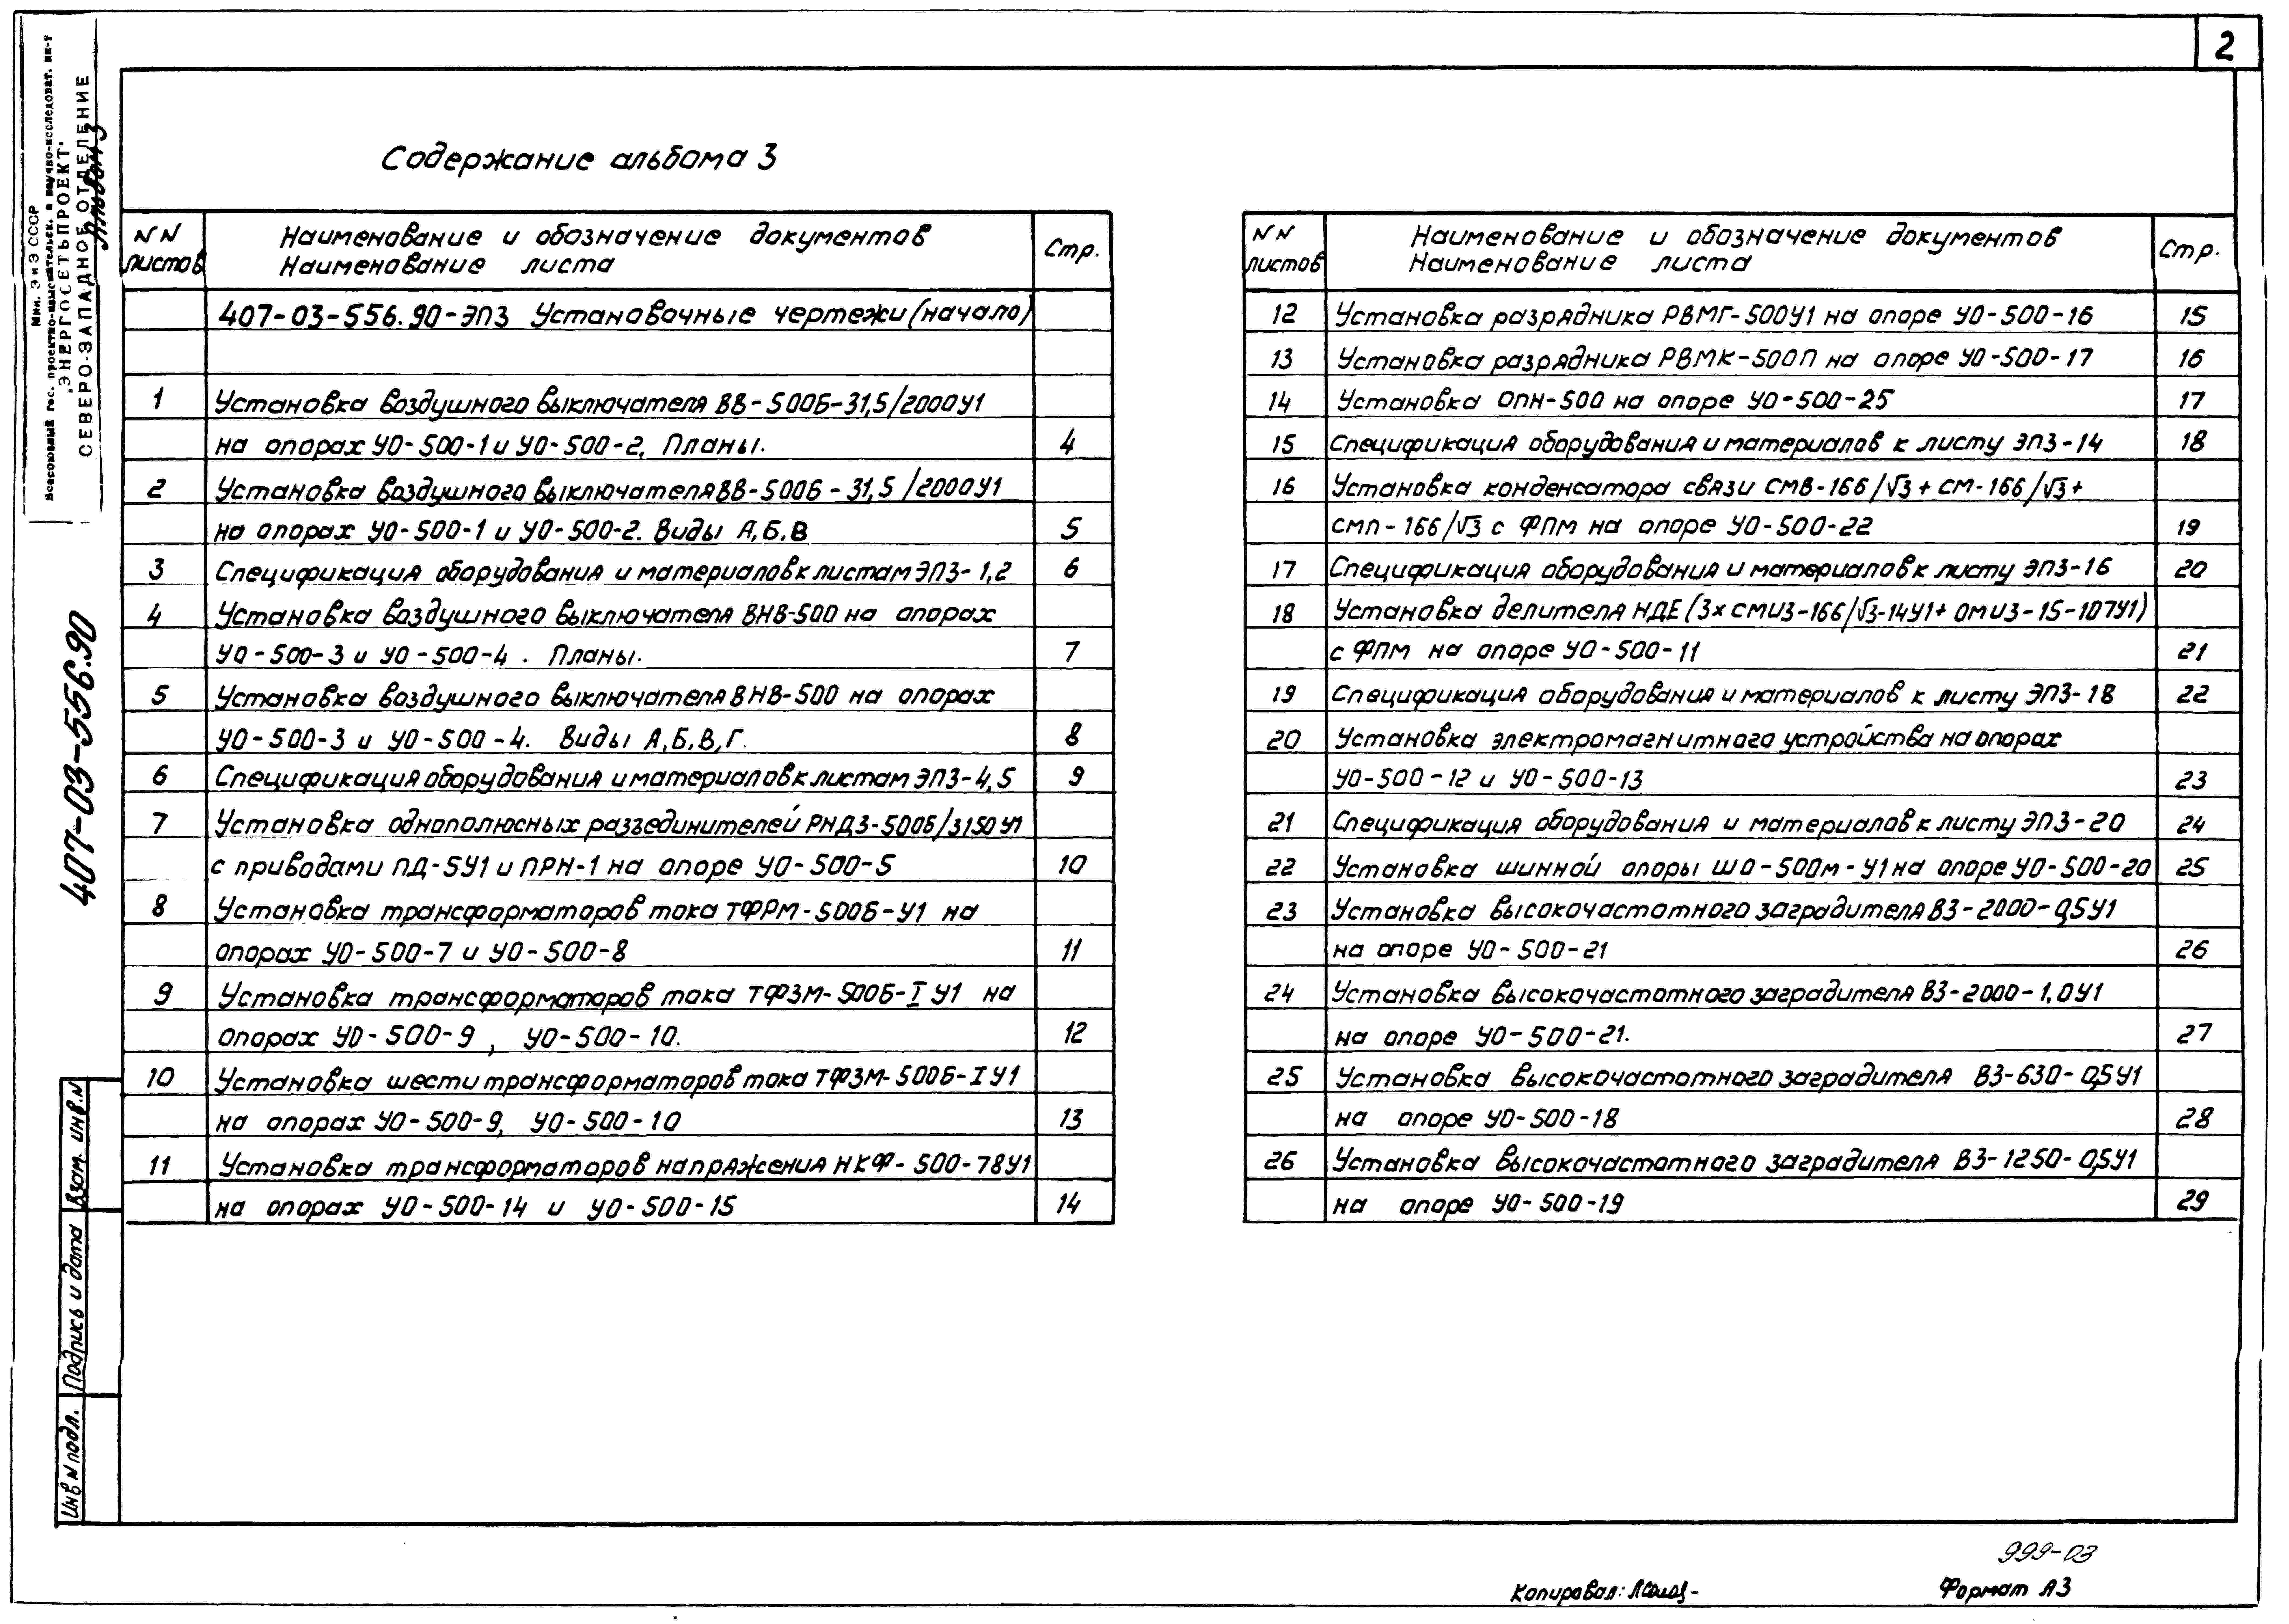 2
Мин. Э и Э СССР
Всесоюзный гос. проектно-изыскательск. и научно-исследоват. ин-т
"ЭНЕРГОСЕТЬПРОЕКТ"
СЕВЕРО-ЗАПАДНОЕ ОТДЕЛЕНИЕ
Альбом 3
407-03-556.90
Содержание альбома 3
NN листов
Наименование и обозначение документов
Наименование листа
Стр.
407-03-556.90-ЭП3 Установочные чертежи (начало)
1 Установка воздушного выключателя ВВ-500Б-31,5/2000У1
на опорах УО-500-1 и УО-500-2. Планы. 4
2 Установка воздушного выключателя ВВ-500Б-31,5/2000У1
на опорах УО-500-1 и УО-500-2. Виды А,Б,В 5
3 Спецификация оборудования и материалов к листам ЭП3-1,2 6
4 Установка воздушного выключателя ВНВ-500 на опорах
УО-500-3 и УО-500-4. Планы. 7
5 Установка воздушного выключателя ВНВ-500 на опорах
УО-500-3 и УО-500-4. Виды А,Б,В,Г. 8
6 Спецификация оборудования и материалов к листам ЭП3-4,5 9
7 Установка однополюсных разъединителей РНДЗ-500Б/3150У1
с приводами ПД-5У1 и ПРН-1 на опоре УО-500-5 10
8 Установка трансформаторов тока ТФРМ-500Б-У1 на
опорах УО-500-7 и УО-500-8 11
9 Установка трансформаторов тока ТФЗМ-500Б-I У1 на
опорах УО-500-9, УО-500-10. 12
10 Установка шести трансформаторов тока ТФЗМ-500Б-I У1
на опорах УО-500-9, УО-500-10 13
11 Установка трансформаторов напряжения НКФ-500-78У1
на опорах УО-500-14 и УО-500-15 14
NN листов
Наименование и обозначение документов
Наименование листа
Стр.
12 Установка разрядника РВМГ-500У1 на опоре УО-500-16 15
13 Установка разрядника РВМК-500П на опоре УО-500-17 16
14 Установка ОПН-500 на опоре УО-500-25 17
15 Спецификация оборудования и материалов к листу ЭП3-14 18
16 Установка конденсатора связи СМВ-166/√3+СМ-166/√3+
СМП-166/√3 с ФПМ на опоре УО-500-22 19
17 Спецификация оборудования и материалов к листу ЭП3-16 20
18 Установка делителя НДЕ (3×СМИЗ-166/√3-14У1+ОМИЗ-15-107У1)
с ФПМ на опоре УО-500-11 21
19 Спецификация оборудования и материалов к листу ЭП3-18 22
20 Установка электромагнитного устройства на опорах
УО-500-12 и УО-500-13 23
21 Спецификация оборудования и материалов к листу ЭП3-20 24
22 Установка шинной опоры ШО-500м-У1 на опоре УО-500-20 25
23 Установка высокочастотного заградителя ВЗ-2000-0,5У1
на опоре УО-500-21 26
24 Установка высокочастотного заградителя ВЗ-2000-1,0У1
на опоре УО-500-21. 27
25 Установка высокочастотного заградителя ВЗ-630-0,5У1
на опоре УО-500-18 28
26 Установка высокочастотного заградителя ВЗ-1250-0,5У1
на опоре УО-500-19 29
Взам. инв.N
Подпись и дата
Инв N подл.
999-03
Копировал:
Формат А3